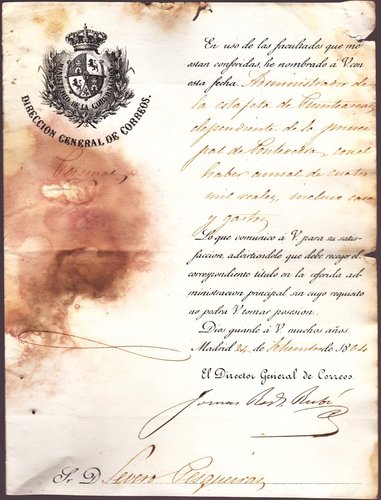 MINISTERIO DE LA GOBERNACION
DIRECCION GENERAL DE CORREOS.
Personal
En uso de las facultades que me
estan conferidas, he nombrado á V. con
esta fecha Administrador de
la estafeta de
dependiente de la princi
pal de Pontevedra, con el
haber anual de cuatro
mil reales, incluso casa
y gastos
Lo que comunico á V. para su satis-
faccion, advirtiendole que debe recoger el
correspondiente titulo en la referida ad-
ministracion principal sin cuyo requisito
no podrá V. tomar posesion.
Dios guarde á V. muchos años.
Madrid 24 de de 18
El Director General de Correos.
Tomas Rodz Rubí
Sr. D. Severo Pesqueira